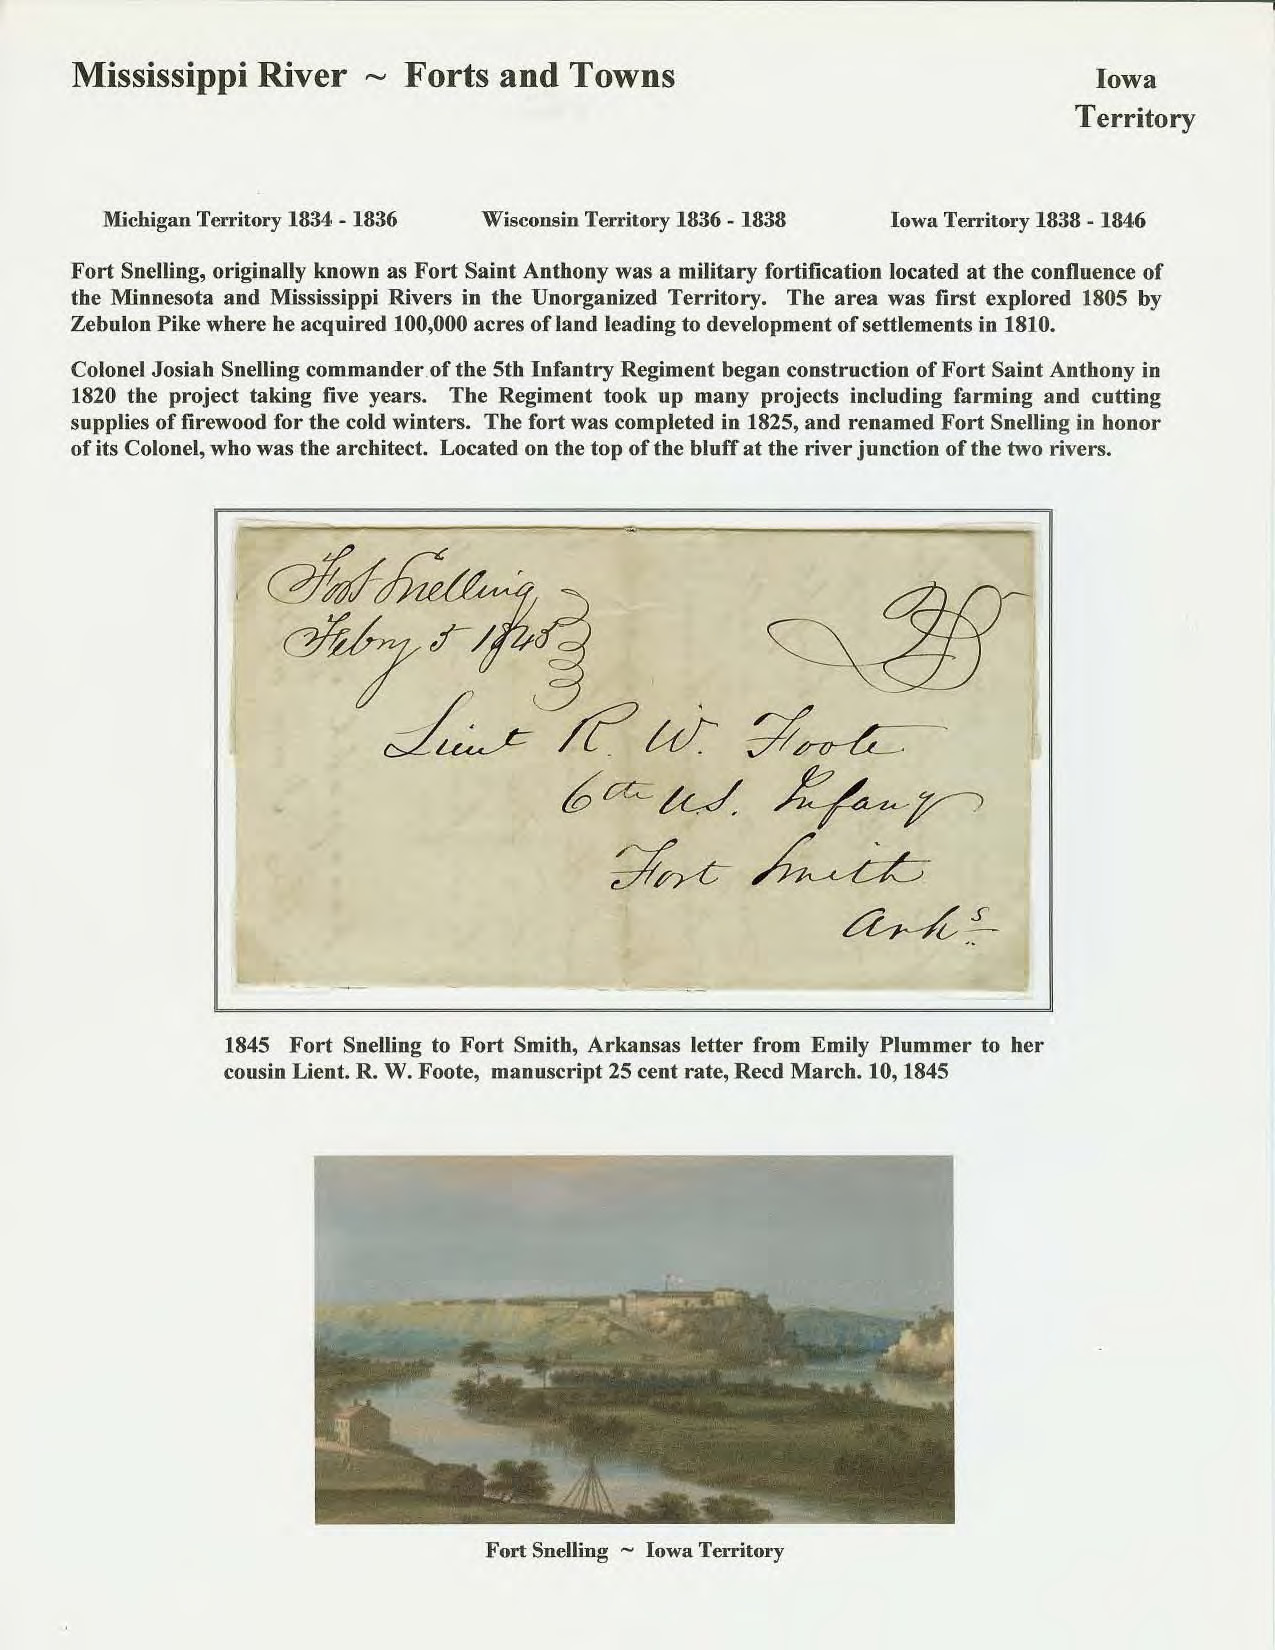 Mississippi River ~ Forts and Towns
Iowa
Territory
Michigan Territory 1834 - 1836 Wisconsin Territory 1836 - 1838 Iowa Territory 1838 - 1846
Fort Snelling, originally known as Fort Saint Anthony was a military fortification located at the confluence of
the Minnesota and Mississippi Rivers in the Unorganized Territory. The area was first explored 1805 by
Zebulon Pike where he acquired 100,000 acres of land leading to development of settlements in 1810.
Colonel Josiah Snelling commander of the 5th Infantry Regiment began construction of Fort Saint Anthony in
1820 the project taking five years. The Regiment took up many projects including farming and cutting
supplies of firewood for the cold winters. The fort was completed in 1825, and renamed Fort Snelling in honor
of its Colonel, who was the architect. Located on the top of the bluff at the river junction of the two rivers.
Fort Snelling
Febry 5 1845
25
Lieut R. W. Foote
6th U.S. Infany
Fort Smith
Arks
1845 Fort Snelling to Fort Smith, Arkansas letter from Emily Plummer to her
cousin Lient. R. W. Foote, manuscript 25 cent rate, Recd March. 10, 1845
Fort Snelling ~ Iowa Territory